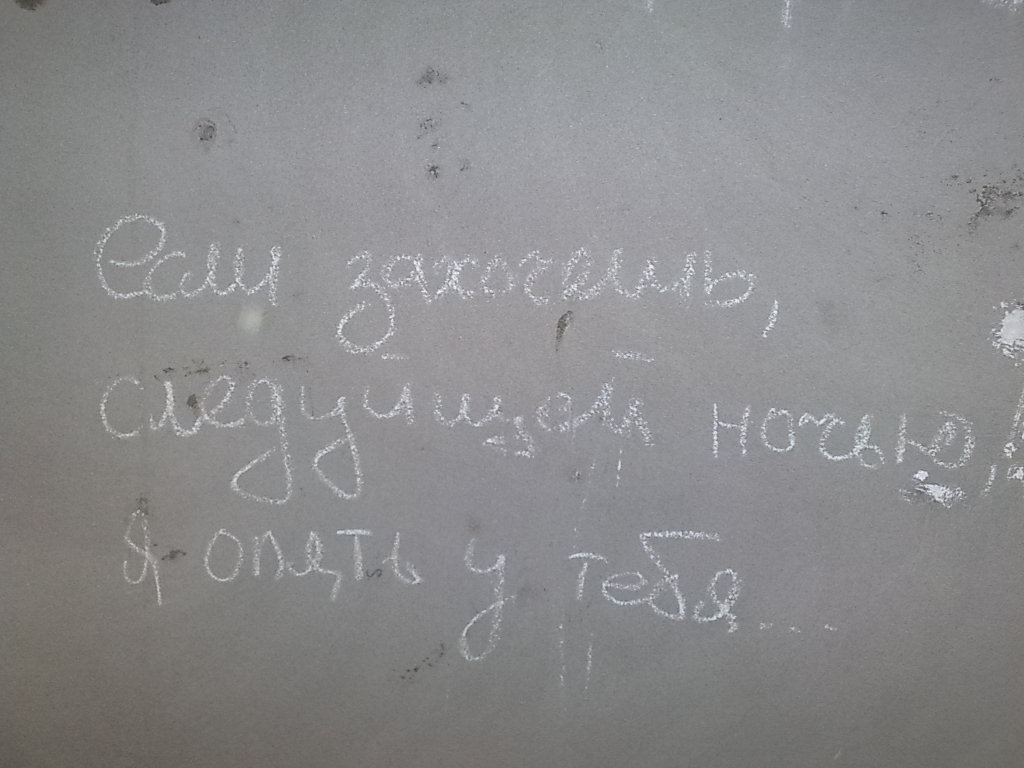 Если захочешь,
следуйщей ночью,!
Я опять у тебя...